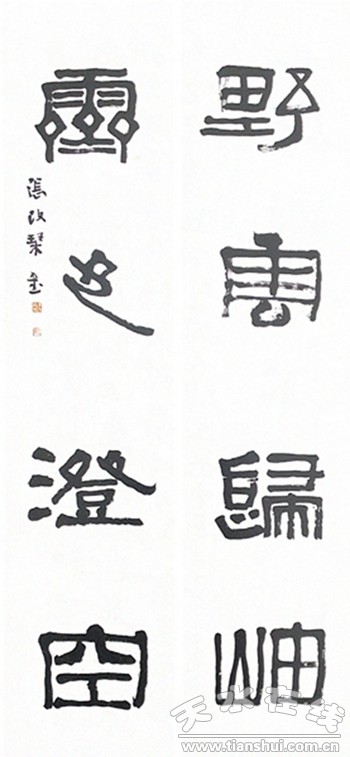 野雲歸岫
靈澄空
張改琴書
天水在线
www.tianshui.com.cn